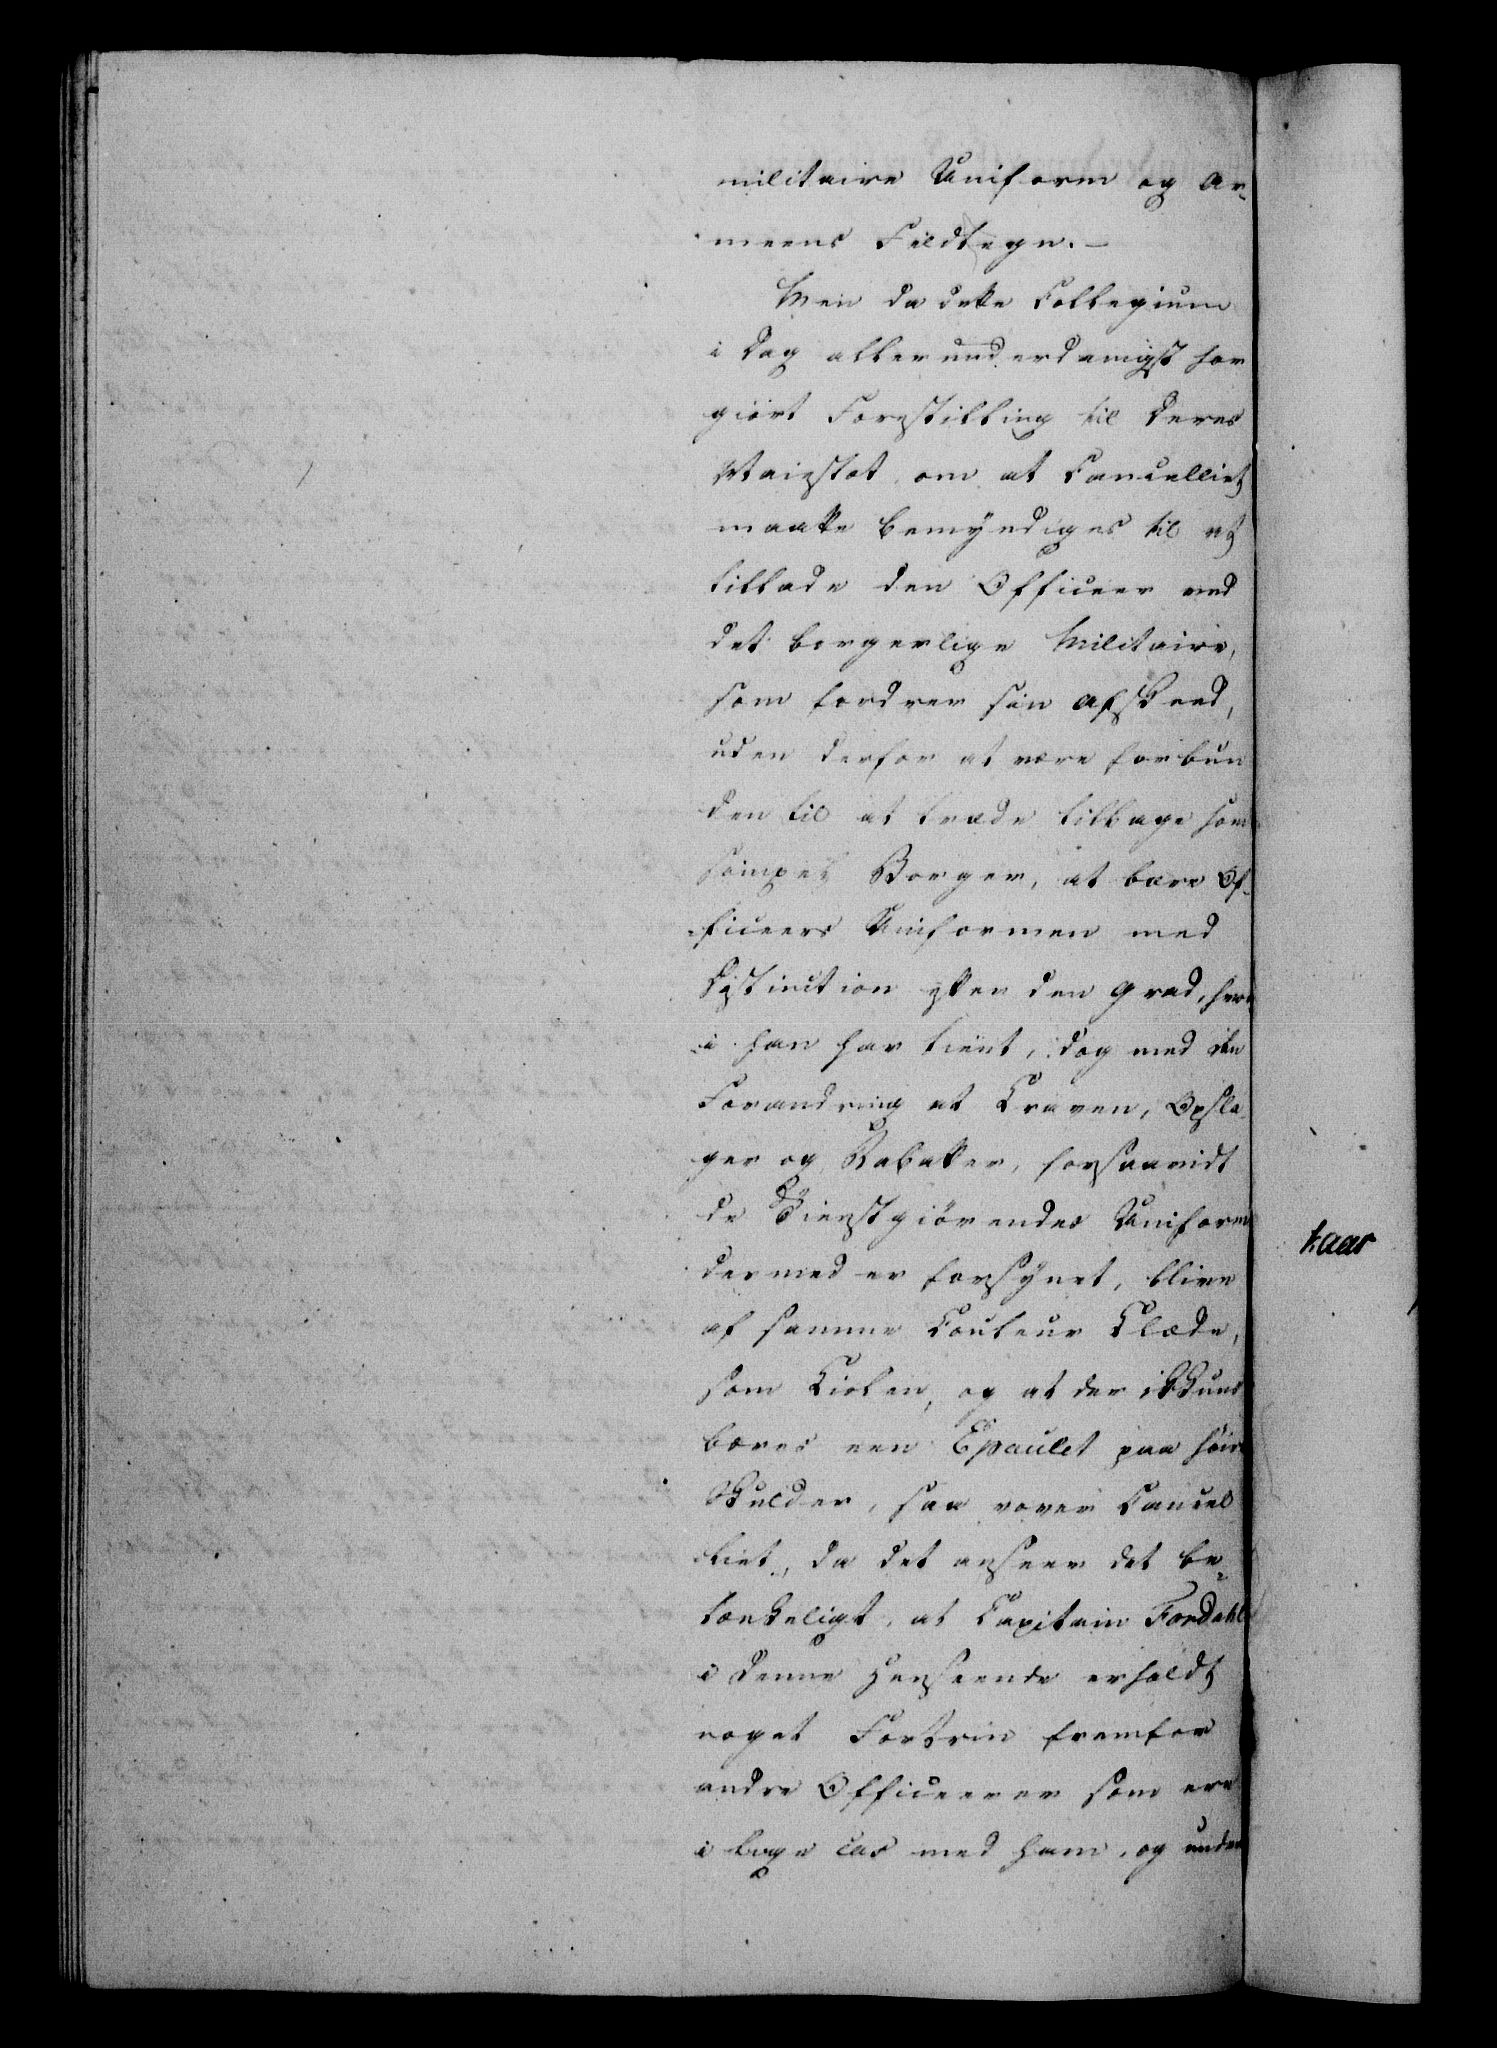 militaire Uniform og Ar-
meens Feldtegn. –
Men da dette Collegium
i Dag allerunderdanigst har
giört Forestilling til Deres
Maiestæt om at Cancelliet
maatte bemyndiges til at
tillade den Officeer ved
det borgerlige Militaire,
som fordrer sin Afskeed,
uden derfor at være forbun
den til at træde tilbage som
simpel Borger, at bære Of-
ficeers Uniformen med
Distinction efter den Grad, hvor
i han har tient, dog med den
Forandring at Kraven, Opsla
ger og Rabatter, forsaavidt
de Tienstgiörendes Uniform
dermed er forsynet, blive
af samme Couleur Klæde,
som Kiolen, og at der ikkuns
bæres een Epaulet paa höire
Skulder, saa vover Cancel
liet, da det anseer det be-
tænkeligt, at Capitain Fordahl
i denne Henseende erholdt
noget Fortrin fremfor
andre Officerer som ere
i lige cas med ham, og under
kaar